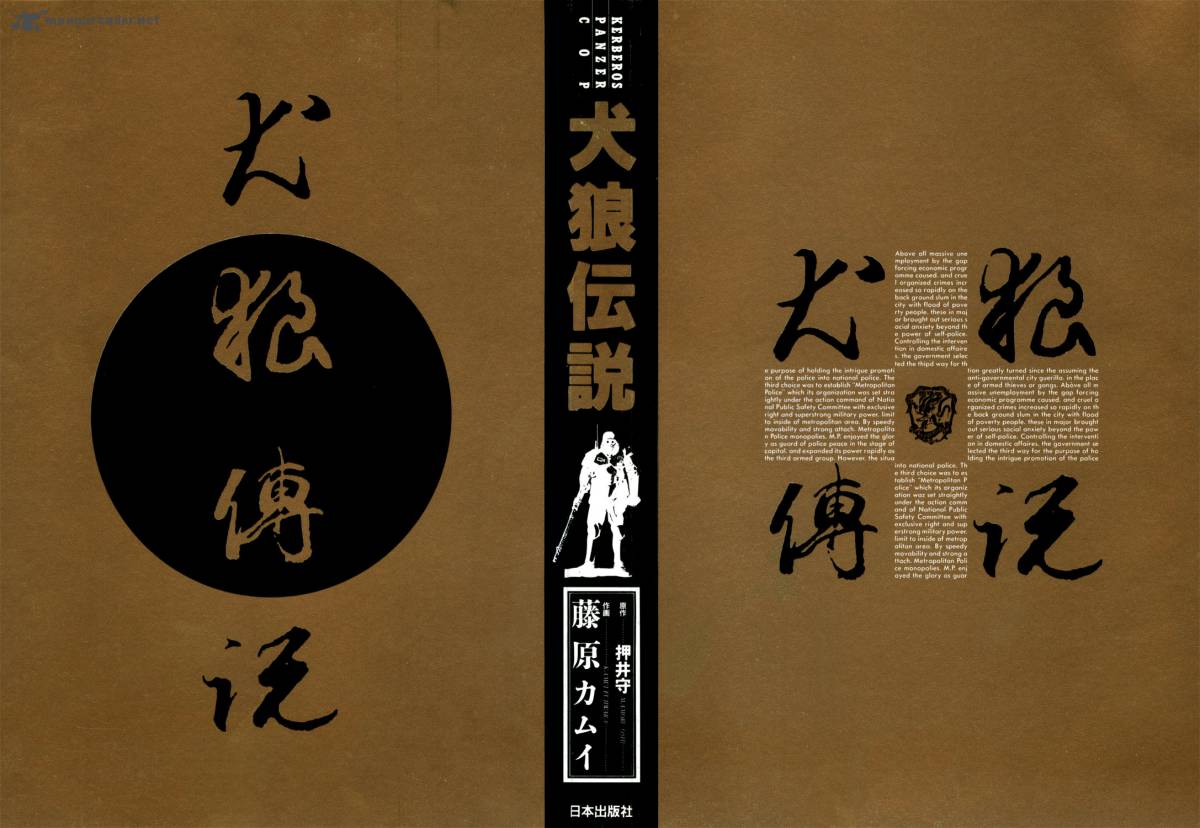 mangareader.net
犬
狼
傳
説
KERBEROS
PANZER
COP
犬狼伝説
原作
押井守
作画
藤原カムイ
日本出版社
犬
狼
傳
説
Above all massive une
mployment by the gap
forcing economic progr
amme caused. and crue
l organized crimes incr
eased so rapidly on the
back ground slum in the
city with flood of pove
rty people. these in maj
or brought out serious s
ocial anxiety beyond th
e power of self-police.
Controlling the interven
tion in domestic affaire
s. the government selec
ted the thipd way for th
e purpose of holding the intrigue promoti
on of the police into national police. The
third choice was to establish "Metropolitan
Police" which its organization was set stra
ightly under the action command of Natio
nal Public Safety Committee with exclusive
right and superstrong military power. limit
to inside of metropolitan area. By speedy
movability and strong attach. Metropolita
n Police monopolies. M.P. enjoyed the glor
y as guard of police peace in the stage of
capital. and expanded its power rapidly as
the third armed group. However. the situa
tion greatly turned since the assuming the
anti-governmental city guerilla. in the plac
e of armed thieves or gangs. Above all m
assive unemployment by the gap forcing
economic programme caused. and cruel o
rganized crimes increased so rapidly on th
e back ground slum in the city with flood
of poverty people. these in major brought
out serious social anxiety beyond the pow
er of self-police. Controlling the interventi
on in domestic affaires. the government se
lected the third way for the purpose of ho
lding the intrigue promotion of the police
into national police. Th
e third choice was to es
tablish "Metropolitan P
olice" which its organiz
ation was set straightly
under the action comm
and of National Public
Safety Committee with
exclusive right and sup
erstrong military power.
limit to inside of metrop
olitan area. By speedy
movability and strong a
ttach. Metropolitan Poli
ce monopolies. M.P. enj
oyed the glory as guar